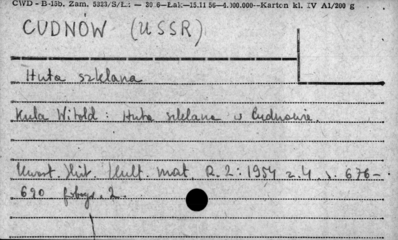 CWD - B-15b. Zam. 5323/S/L: — 20.6—Łak—15.11 56—4.000.000—Karton kl. IV A1/200 g
CUDNÓW (USSR)
Huta szklana
Kula Witold: Huta szklana w Cudnowie.
Kwart. Hist. Kult. Mat. R. 2: 1954 z. 4 s. 676-
690 fotogr. 2.